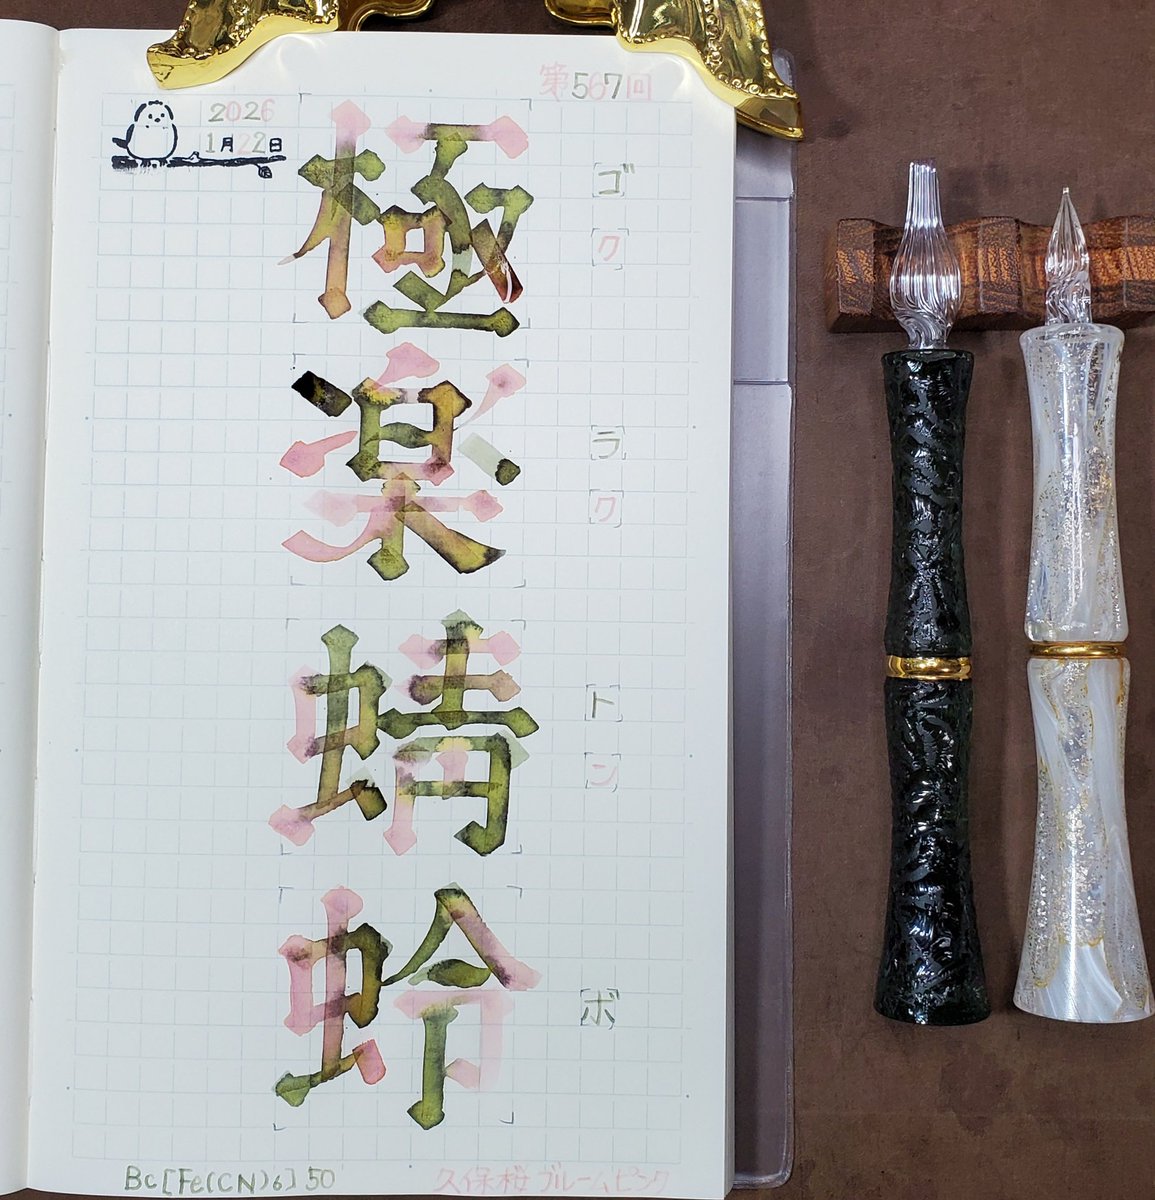 第567回
2026
1月22日
極楽蜻蛉
ゴクラクトンボ
Bc[Fe(CN)6]50
久保桜ブルームピンク